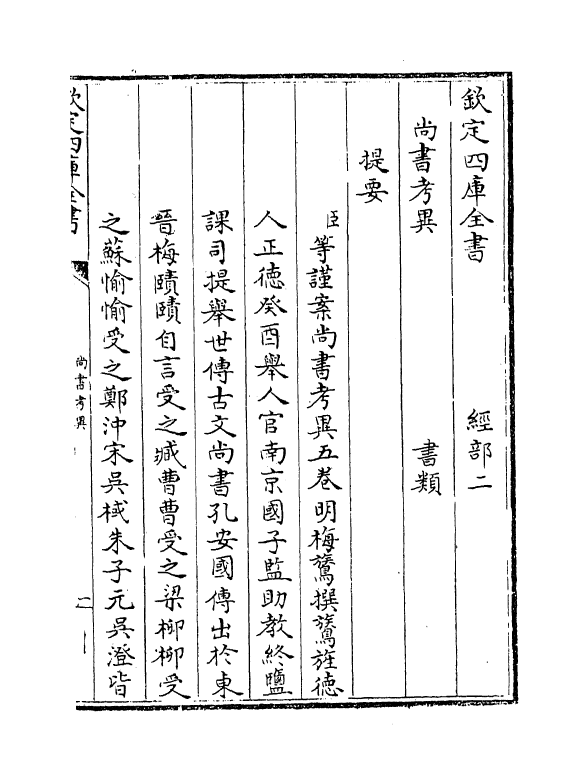 欽定四庫全書　經部二
尚書考異　書類
提要
臣等謹案尚書考異五卷明梅鷟撰鷟旌德
人正德癸酉舉人官南京國子監助教終鹽
課司提舉世傳古文尚書孔安國傳出於東
晉梅賾賾自言受之臧曹曹受之梁柳柳受
之蘇愉愉受之鄭沖宋吳棫朱子元吳澄皆
欽定四庫全書
尚書考異